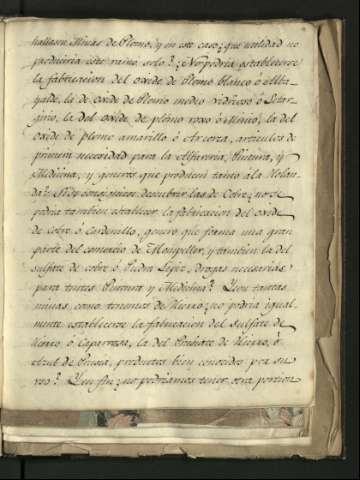 hallasen Minas de Plomo, y en este caso ¿que utilidad no
produciria este ramo solo? ¿No podria establecerse
la fabricacion del oxîde de Plomo blanco ó Alba-
yalde, la de oxîde de Plomo medio vidrioso ó Litar-
girio, la del oxîde de plomo roxo ó Minio, la del
oxîde de plomo amarillo ó Ancorca, articulos de
primera necesidad para la Alfareria, Pintura, y
Medicina, y generos que producen tanto á la Holan-
da? Si se consiguiese descubrir las de Cobre ¿no se
podria tambien establecer la fabricacion del oxîde
de cobre ó Cardenillo, genero que forma una gran
parte del comercio de Mompeller, y tambien la del
sulfate de cobre ó Piedra Lipiz, drogas necesarias
para tintes Pintura y Medicina? Y con tantas
minas, como tenemos de Hierro ¿no podria igual-
mente establecerse la fabricacion del sulfate de
hierro ó Caparrosa, la del Prusiate de Hierro, ó
Azul de Prusia, productos bien conocidos por su
uso? Y en fin ¿no podriamos tener otra porcion